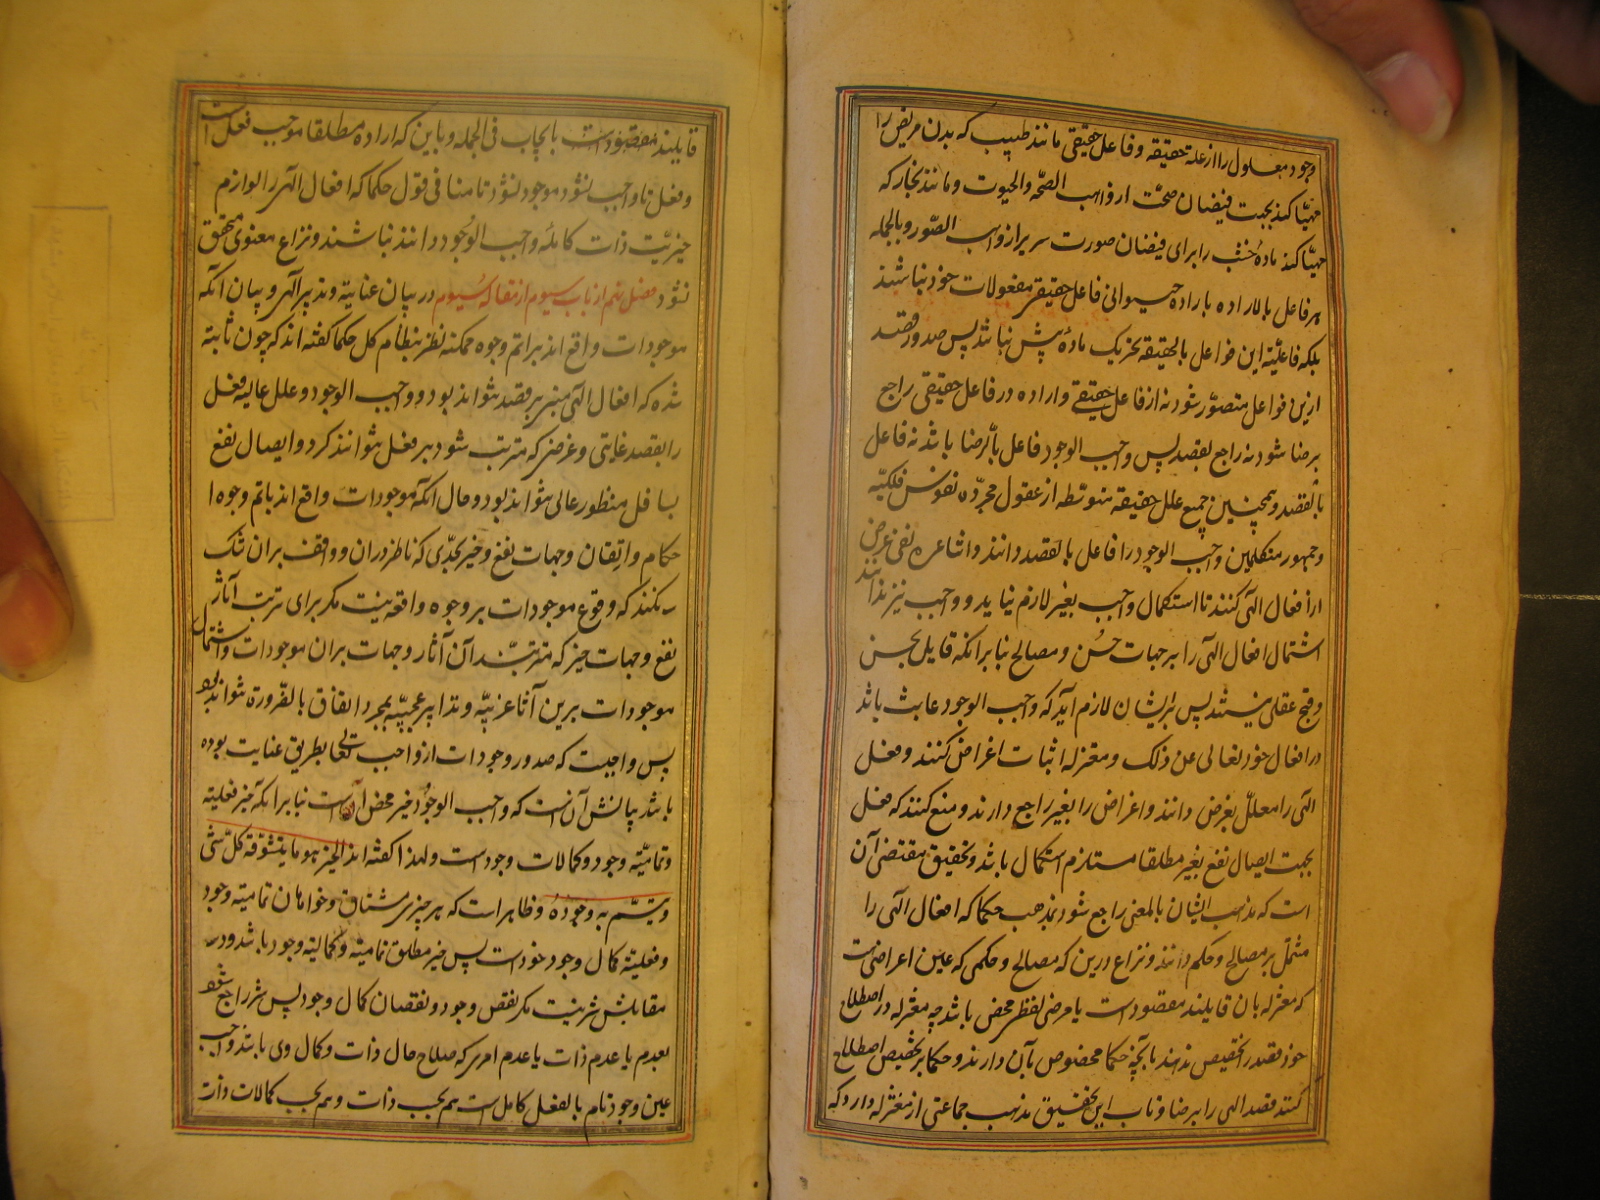 وجود معلول را از علة حقیقه و فاعل حقیقی مانند طبیب که بدن مریض را
مهیّا کند بجهت فیضان صحّت از واهب الصحّه والحیوت و مانند نجار که
مهیّا کند ماده خشب را برای فیضان صورت سریر از واهب الصّور و بالجمله
هر فاعل بالاراده باراده حیوانی فاعل حقیقی مفعولات خود نباشند
بلکه فاعلیّة این فواعل بالحقیقه تحریک مادهٔ بیش نباشد پس صدور قصد
ازین فواعل متصوّر شود نه از فاعل حقیقی و اراده در فاعل حقیقی راجع
برضا شود نه راجع بقصد پس واجب الوجود فاعل بالرّضا باشد نه فاعل
بالقصد و همچنین جمیع علل حقیقه متوسّطه از عقول مجرّده نفوس فلکیّه
و جمهور متکلمین واجب الوجود را فاعل بالقصد دانند و اشاعره نفی غرض
از افعال الهی کنند تا استکمال واجب بغیر لازم نیاید و واجب نیز ندانند
اشتمال افعال الهی را بر جهات حُسن و مصالح بنا بر انکه قایل بحسن
و قبح عقلی نیستند پس بر ایشان لازم آید که واجب الوجود عابث باشد
در افعال خود تعالی عن ذلک و معتزله اثبات اغراض کنند و فعل
الهی را معلّل بغرض دانند و اغراض را بغیر راجع دارند و منع کنند که فعل
بجهت ایصال نفع بغیر مطلقا مستلزم استکمال باشد و تحقیق مقتضی آن
است که مذهب ایشان بالمعنی راجع شود بمذهب حکما که افعال الهی را
مشتمل بر مصالح و حکم دانند و نزاع درین که مصالح و حکمی که عین اغراضی است
که معتزله بان قایلند مقصود است یا مرضی لفظی محض باشد چه معتزله در اصطلاح
خود قصد را تخصیص ندهند بانچه حکما مخصوص بآن دارند و حکما بر تخصیص اصطلاح
کنند قصد الهی را برضا و ناب این تحقیق مذهب جماعتی از معتزله دارد که
قایلیند مقصود است بایجاب فی الجمله و باین که اراده مطلقا موجب فعل است
و فعل تا واجب نشود موجود نشود تا منافی قول حکما که افعال الهی را لوازم
خیریّت ذات کاملهٔ واجب الوجود دانند نباشند و نزاع معنوی محقق
نشود فصل نهم از باب سیوم از مقاله سیوم در بیان عنایة و تدبیر الهی و بیان انکه
موجودات واقع اند بر اتم وجوه ممکنه نظر بنظام کل حکما گفته اند که چون ثابته
شده که افعال الهی مبنی بر قصد نتواند بود و واجب الوجود و علل عالیه فعل
را بقصد غایتی و غرضی که مترتب شود بر فعل نتوانند کرد و ایصال نفع
بسافل منظور عالی نتواند بود و حال انکه موجودات واقع اند باتم وجوه ا
حکام و اتقان و جهات نفع و خیر بحدّی که ناظر دران و واقف بران شک
نکند که وقوع موجودات بر وجوه واقع نیست مکر برای ترتب آثار
نفع و جهات خیر که مترتبند آن آثار و جهات بران موجودات و اشتمال
موجودات برین آثار غریبه و تدابیر عجیبه بمجرد اتفاق بالضّرورة نتواند بود
پس واجبست که صدور وجودات از واجب تعالی بطریق عنایت بوده
باشد بیانش آن است که واجب الوجود خیر محض است بنا بر انکه خیر فعلیة
و تمامیّه وجود و کمالات وجود است و لهذا گفته اند الخیر هو ما یتشوّقه کلّ شئ
و یتمّ به وجوده و ظاهر است که هر چیزی مشتاق و خواهان تمامیه وجود
و فعلیة کمال وجود خود است پس خیر مطلق تمامیة و کمالیة وجود باشد و در
مقابلش شر نیست مکر نقص وجود و نقصان کمال وجود پس شر راجع شود
بعدم یا عدم ذات یا عدم امری که صلاح حال ذات و کمال وی باشد و واجب
عین وجود تام بالفعل کامل است هم بحسب ذات و هم بحسب کمالات ذات